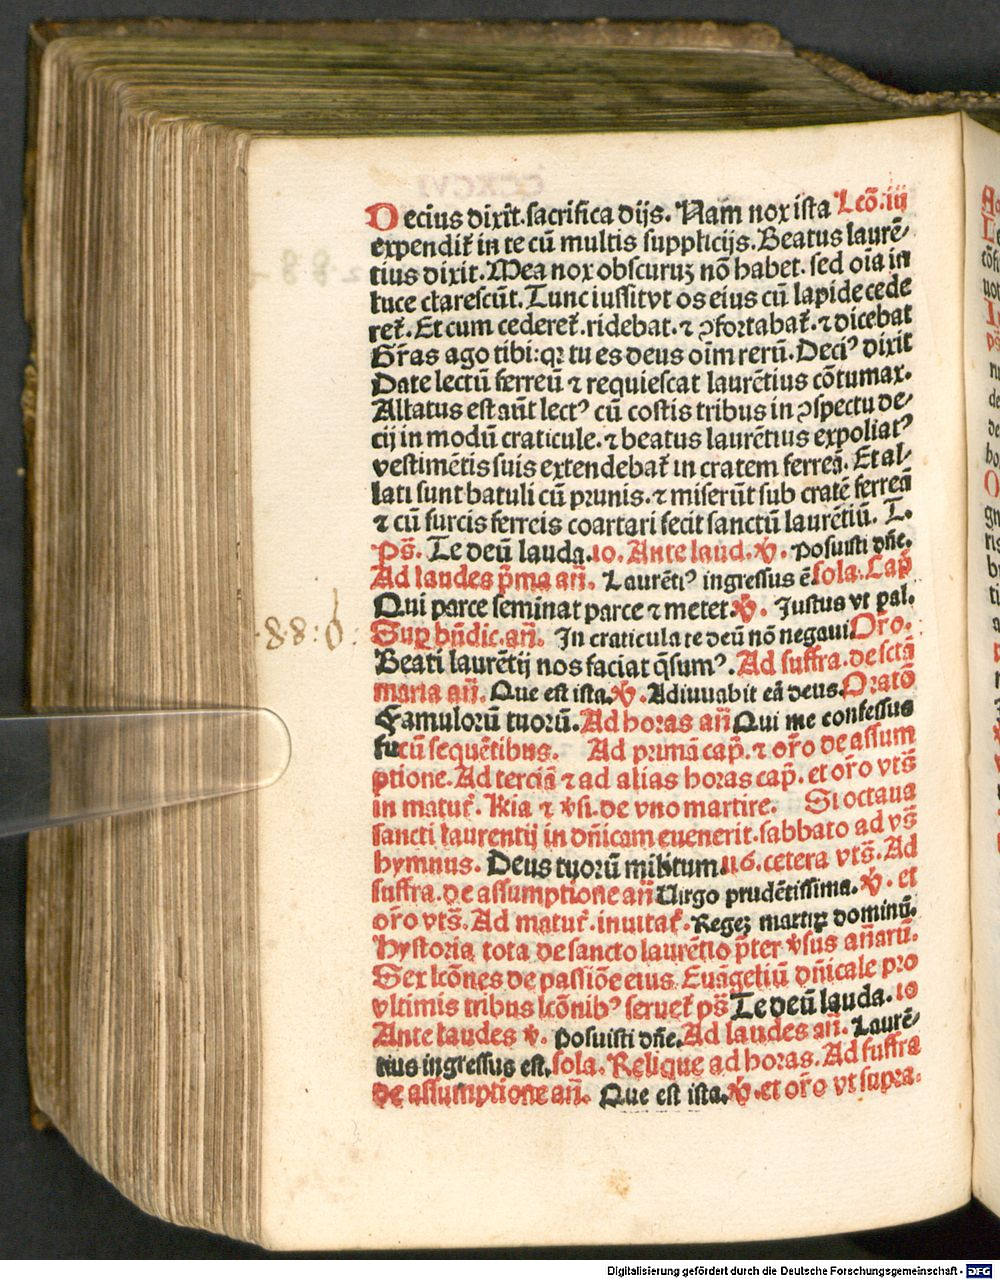 Decius dixit̄. sacrifica dijs. Nam nox ista Lcō. iij
expendit̄ in te cū multis supplicijs. Beatus laurē⸗
tius dixit. Mea nox obscurūꝫ nō habet. sed oīa in
luce clarescūt. Tunc iussit vt os eius cū lapide cede
ret̄. Et cum cederet̄. ridebat. ⁊ ꝯfortabat̄. ⁊ dicebat
Gr̄as ago tibi: qꝛ tu es deus oīm rerū. Deciꝰ dixit
Date lectū ferreū ⁊ requiescat laurētius cōtumax.
Allatus est aūt lectꝰ cū costis tribus in ꝯspectu de⸗
cij in modū craticule. ⁊ beatus laurētius expoliatꝰ
vestimētis suis extendebat̄ in cratem ferreā. Et al⸗
lati sunt batuli cū prunis. ⁊ miserūt sub cratē ferreā
⁊ cū furcis ferreis coartari fecit sanctū laurētiū. T.
ps̄. Te deū lauda. 10. Ante laud. ℣. Posuisti dn̄e.
Ad laudes p̄ma an̄. Laurētiꝰ ingressus ē sola. Cap̄
Qui parce seminat parce ⁊ metet. ℣. Justus vt pal.
·88: d: Sup bn̄dic. an̄. In craticula te deū nō negaui Or̄o.
Beati laurētij nos faciat q̄sumꝰ. Ad suffra. de sctā
maria an̄. Que est ista. ℣. Adiuuabit eā deus. Oratō
Famulorū tuorū. Ad horas an̄ Qui me confessus
fu cū sequētibus. Ad primā cap̄. ⁊ or̄o de assum
ptione. Ad terciā ⁊ ad alias horas cap̄. et or̄o vts̄
in matut̄. Rn̄ia ⁊ ℣si. de vno martire. Si octaua
sancti laurentij in dn̄icam euenerit. sabbato ad vs̄
hymnus. Deus tuorū militum. 116. cetera vts̄. Ad
suffra. de assumptione an̄ Virgo prudētissima. ℣. et
or̄o vts̄. Ad matut̄. inuitat̄. Regeꝫ martiꝝ dominū.
Hystoria tota de sancto laurētio p̄ter ℣sus an̄arū.
Sex lcōnes de passiōe eius. Euāgeliū dn̄icale pro
vltimis tribus lcōnibꝰ seruet̄ ps̄ Te deū lauda. 10
Ante laudes ℣. Posuisti dn̄e. Ad laudes an̄. Laurē⸗
tius ingressus est. sola. Relique ad horas. Ad suffra
de assumptione an̄. Que est ista. ℣. et or̄o vt supra.
Digitalisierung gefördert durch die Deutsche Forschungsgemeinschaft - DFG